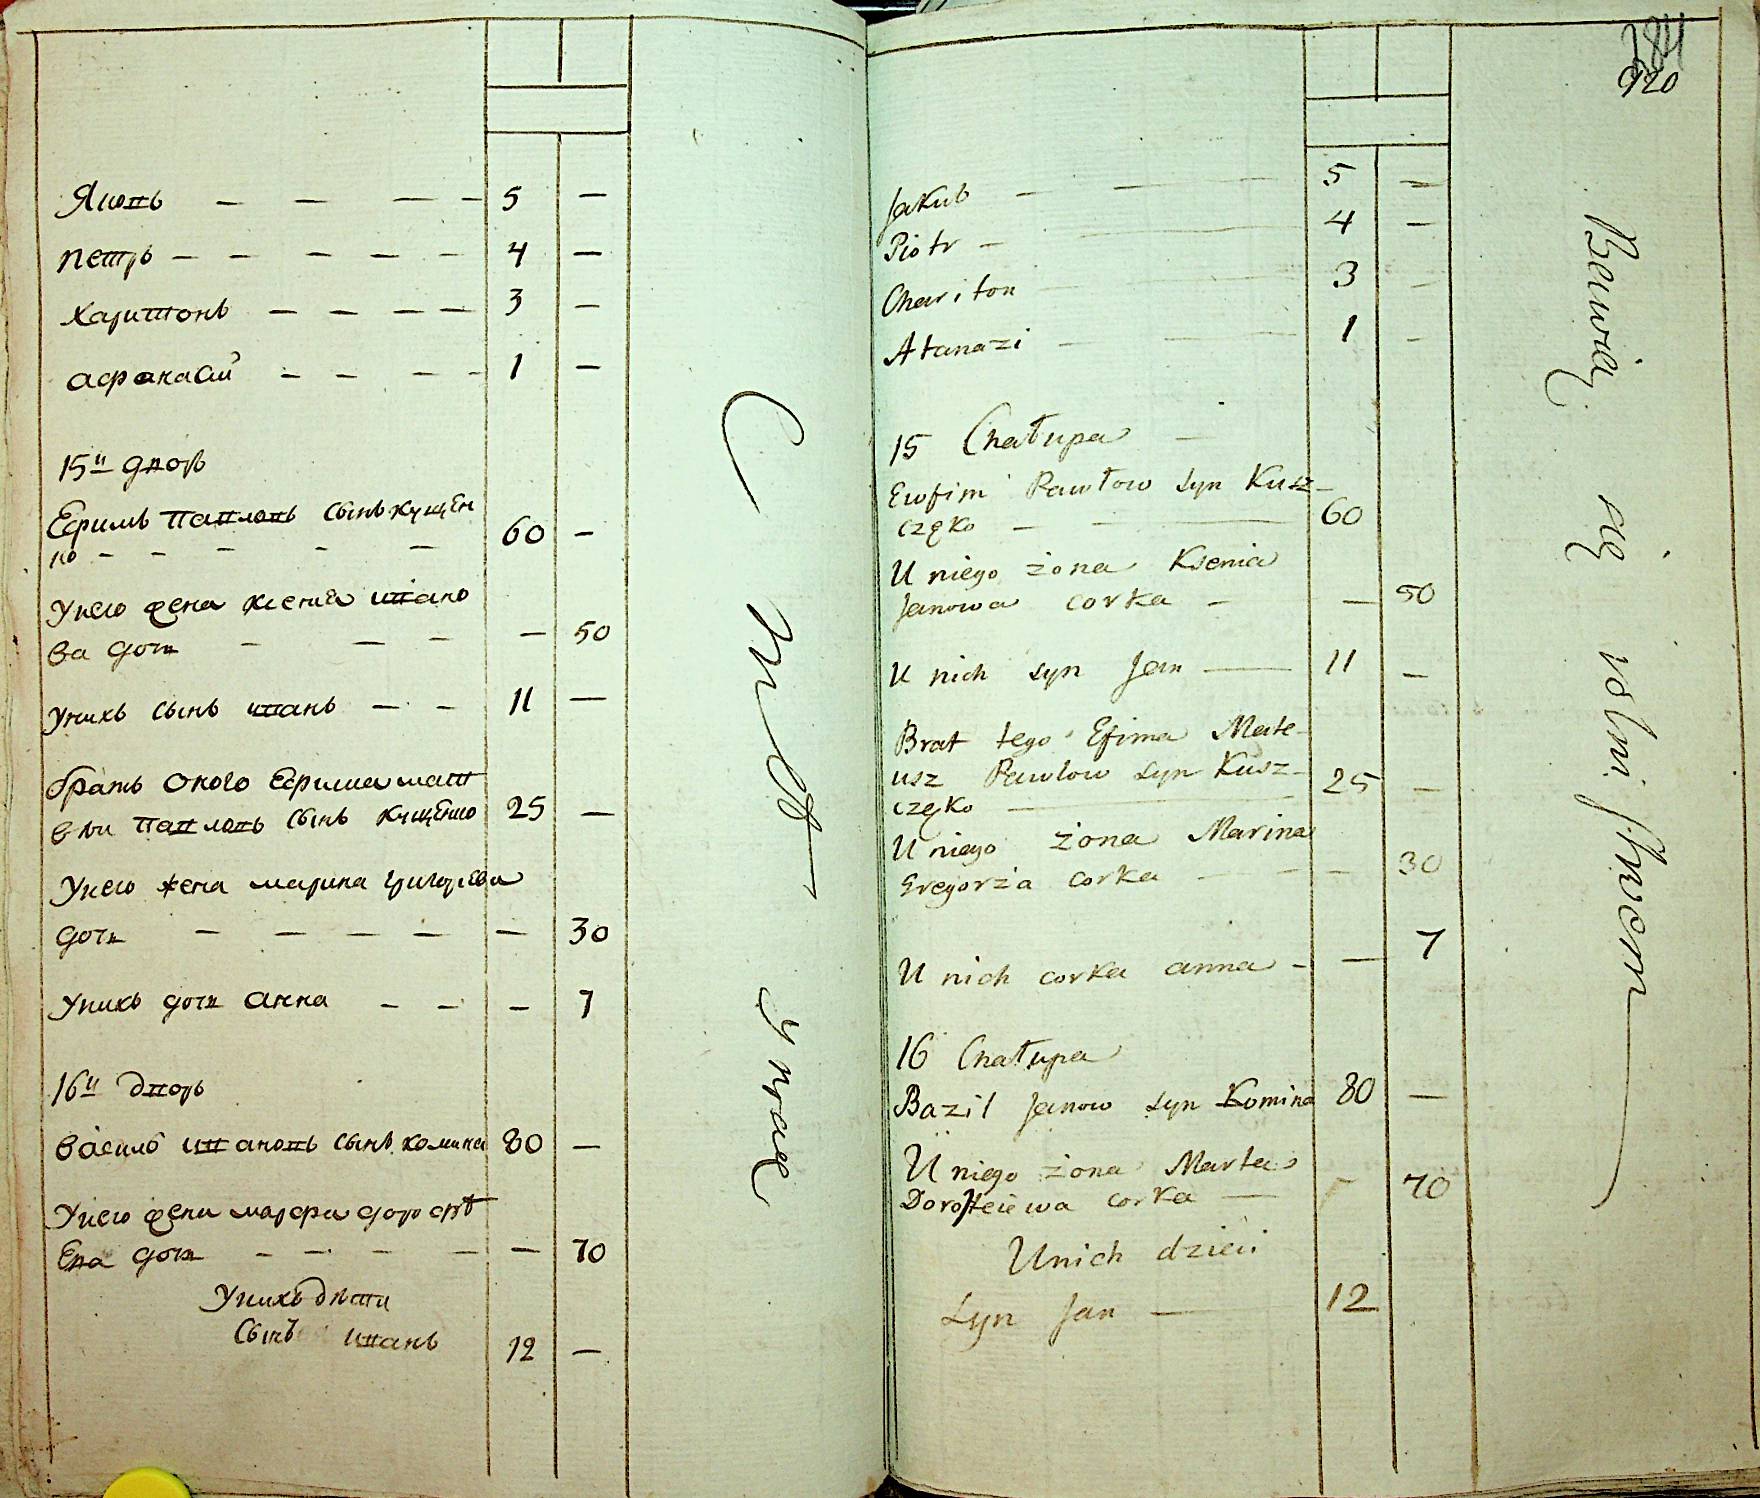 Яковъ — — — — 5 —
петръ — — — — — 4 —
харитонъ — — — — 3 —
афанасий — — — — 1 —
15й дворъ
Ефимъ павловъ сынъ кущен
ко — — — — — 60 —
Унего жена ксения ивано
ва дочь — — — — 50
Унихъ сынъ иванъ — — 11 —
братъ оного Ефима мат
вѣи павловъ сынъ кущенко 25 —
Унего жена марина григорева
дочь — — — — — 30
Унихъ дочь анна — — — 7
16й дворъ
василѣ ивановъ сынъ комина 80 —
Унего жена марфа дорофѣ
ева дочь — — — — — 70
Унихъ дѣти
сынъ иванъ 12 —
920
Jakub — — — 5 —
Piotr — — 4 —
Chariton — — 3 —
Atanazi — — 1 —
15 Chałupa —
Ewfim Pawłow syn Kusz-
częko — — 60
U niego żona Ksenia
Janowa corka — — 50
U nich syn Jan — 11 —
Brat tego Efima Mate-
usz Pawlow syn Kusz-
częko — 25 —
U niego żona Marina
Gregorza corka — — — 30
U nich corka anna — — 7
16 Chałupa
Bazil Janow syn Komina 80 —
U niego żona Marta
Dorofteiewa corka — 70
U nich dzieci
syn Jan — 12
Bawią się